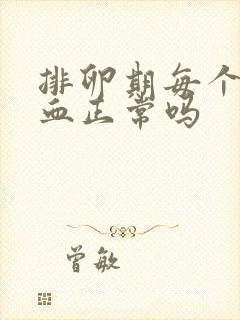 排卵期每个
血正常吗
曾敏